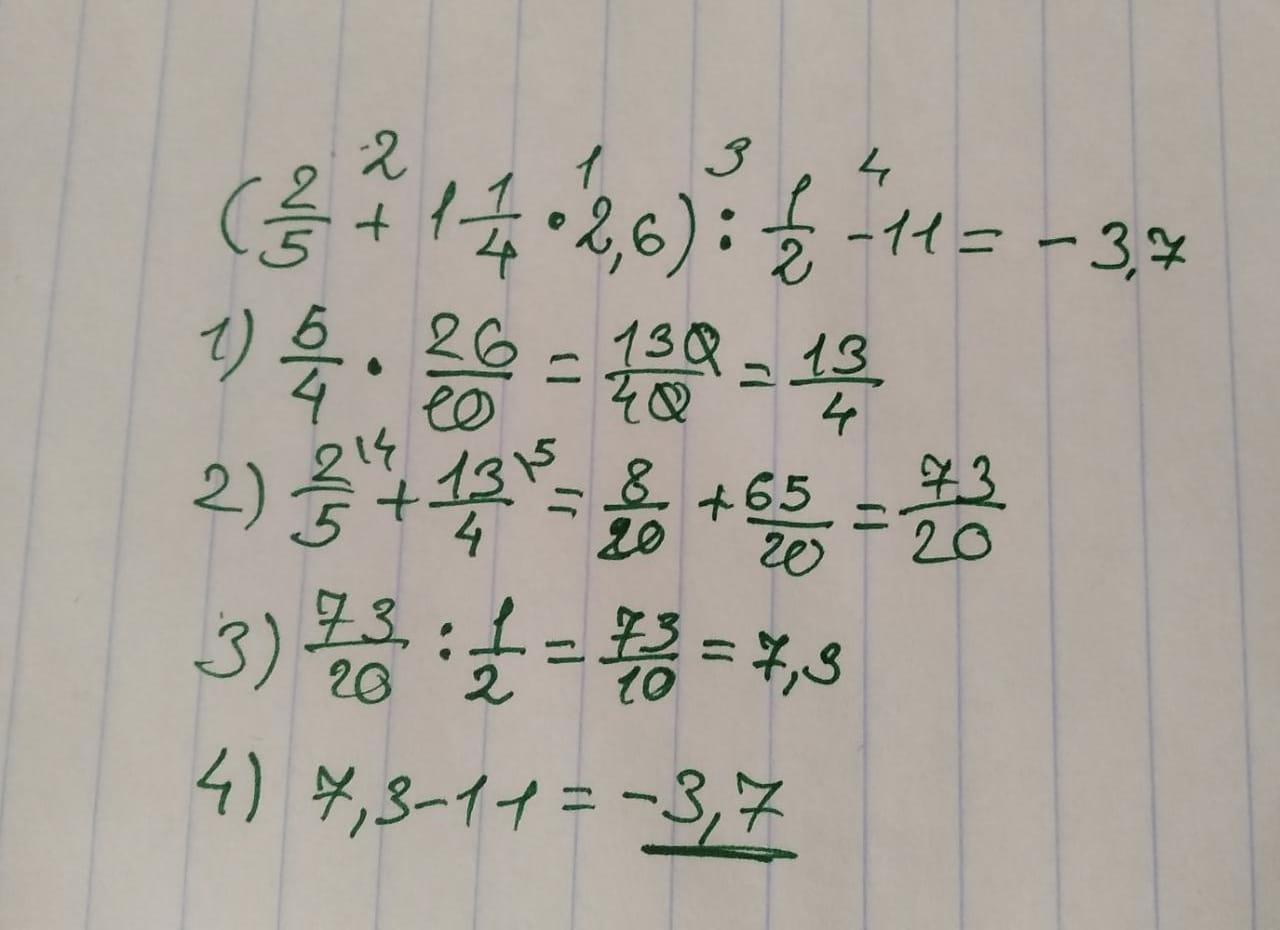 (2/5 + 1 1/4 · 2,6) : 1/2 - 11 = - 3,7
2 1 3 4
1) 5/4 · 26/10 = 130/40 = 13/4
2) 2/5 \4 + 13/4 \5 = 8/20 + 65/20 = 73/20
3) 73/20 : 1/2 = 73/10 = 7,3
4) 7,3 - 11 = - 3,7